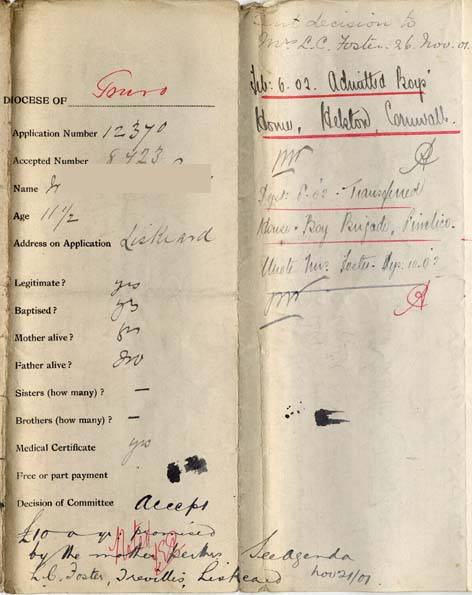 DIOCESE OF Truro
Application Number 12370
Accepted Number 8423
Name
Age 11 1/2
Address on Application Liskeard
Legitimate? yes
Baptised? yes
Mother alive? yes
Father alive? No
Sisters (how many)? —
Brothers (how many)? —
Medical Certificate yes
Free or part payment
Decision of Committee Accept
£10 a yr. promised
by the mother
L.C. Foster, Trevillis, Liskeard
sent decision to
Mrs L.C. Foster. 26. Nov. 01.
Feb: 6. 02. Admitted Boys'
Home, Helston, Cornwall.
Sept: 8. 02 - Transferred
House - Boy Brigade, Pimlico.
Wrote Mrs Foster. Sep. 10. 02
See Agenda
Nov 21/01